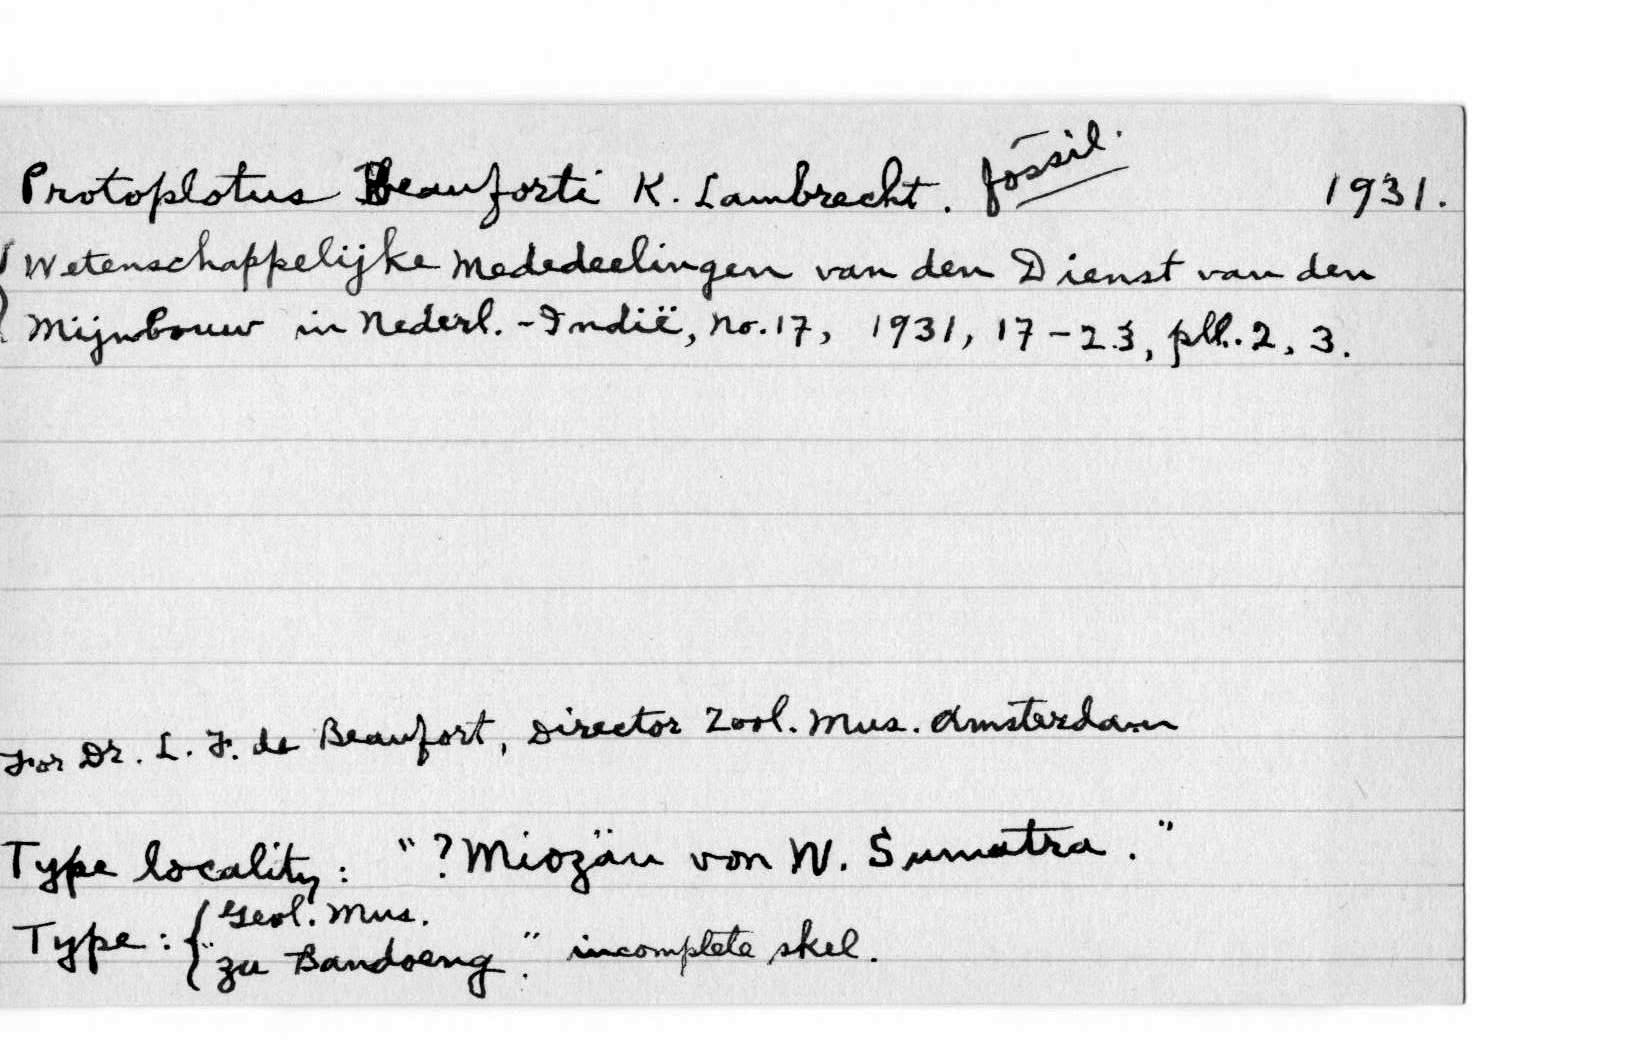 Protoplotus Beauforti K. Lambrecht. fossil. 1931.
Wetenschappelijke Mededeelingen van den Dienst van den
Mijnbouw in Nederl.-Indië, No. 17, 1931, 17-23, pll. 2, 3.
For Dr. L. F. de Beaufort, Director Zool. Mus. Amsterdam
Type locality: "? Miozän von W. Sumatra."
Type: { Geol. Mus.
"zu Bandoeng." incomplete skel.